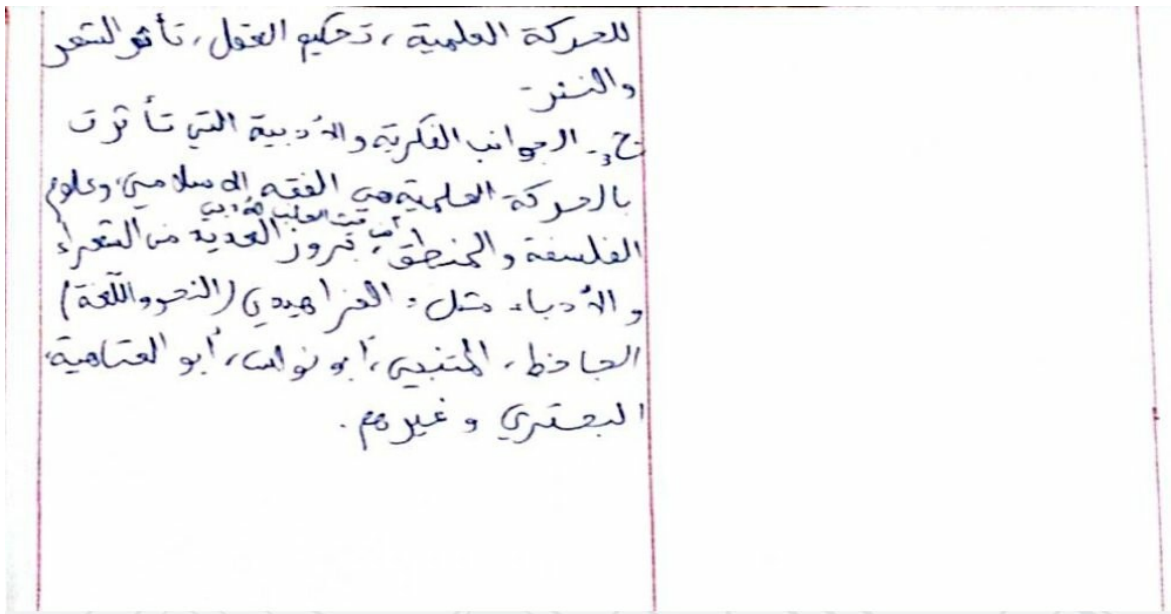 للحركة العلمية، تحكيم العقل، تأثر الشعر
والنثر.
ج3- الجوانب الفكرية والأدبية التي تأثرت
بالحركة العلمية هي الفقه الإسلامي، وعلوم
الفلسفة والمنطق، بروز العديد من الشعراء
والأدباء مثل: الفراهيدي (النحو واللّغة)
الجاحظ، المتنبي، أبو نواس، أبو العتاهية،
البحتري وغيرهم.